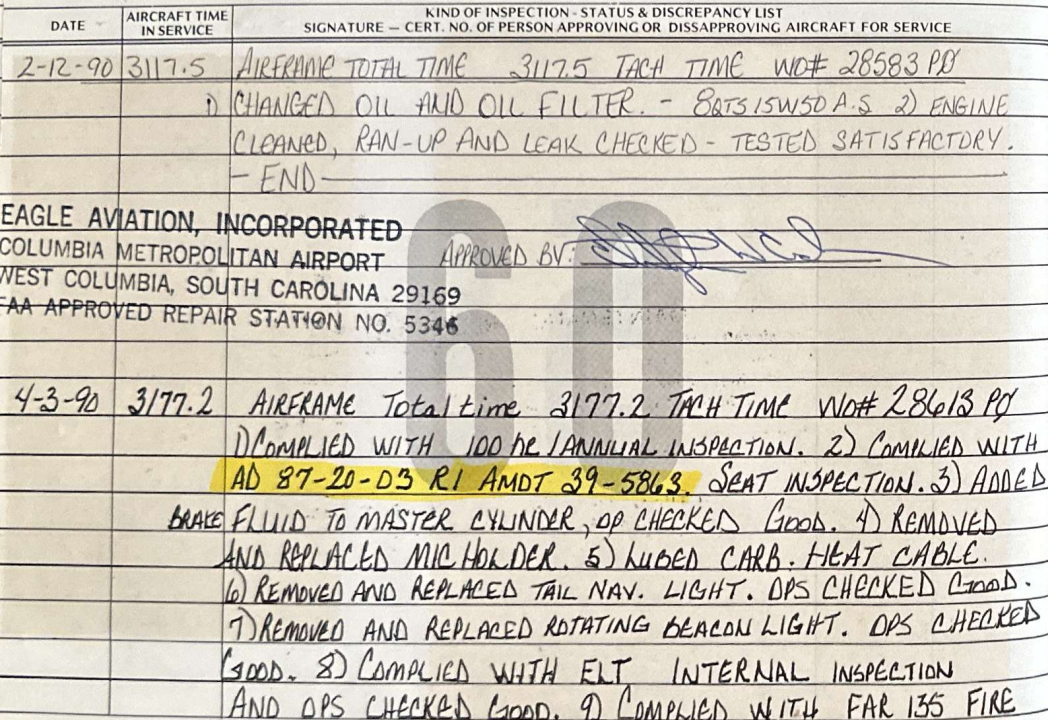 DATE AIRCRAFT TIME IN SERVICE KIND OF INSPECTION - STATUS & DISCREPANCY LIST
SIGNATURE — CERT. NO. OF PERSON APPROVING OR DISSAPPROVING AIRCRAFT FOR SERVICE
2-12-90 3117.5 AIRFRAME TOTAL TIME 3117.5 TACH TIME WO# 28583 PØ
1) CHANGED OIL AND OIL FILTER. - 8QTS 15W50 A.S 2) ENGINE
CLEANED, RAN-UP AND LEAK CHECKED - TESTED SATISFACTORY.
- END -
60
EAGLE AVIATION, INCORPORATED
COLUMBIA METROPOLITAN AIRPORT
WEST COLUMBIA, SOUTH CAROLINA 29169
FAA APPROVED REPAIR STATION NO. 5346
APPROVED BY:
4-3-90 3177.2 AIRFRAME Total time 3177.2 TACH TIME WO# 28613 PØ
1) COMPLIED WITH 100 hr / ANNUAL INSPECTION. 2) COMPLIED WITH
AD 87-20-03 R1 AMDT 39-5863. SEAT INSPECTION. 3) ADDED
BRAKE FLUID TO MASTER CYLINDER, OP CHECKED GOOD. 4) REMOVED
AND REPLACED MIC HOLDER. 5) LUBED CARB. HEAT CABLE.
6) REMOVED AND REPLACED TAIL NAV. LIGHT. OPS CHECKED GOOD.
7) REMOVED AND REPLACED ROTATING BEACON LIGHT. OPS CHECKED
GOOD. 8) COMPLIED WITH ELT INTERNAL INSPECTION
AND OPS CHECKED GOOD. 9) COMPLIED WITH FAR 135 FIRE